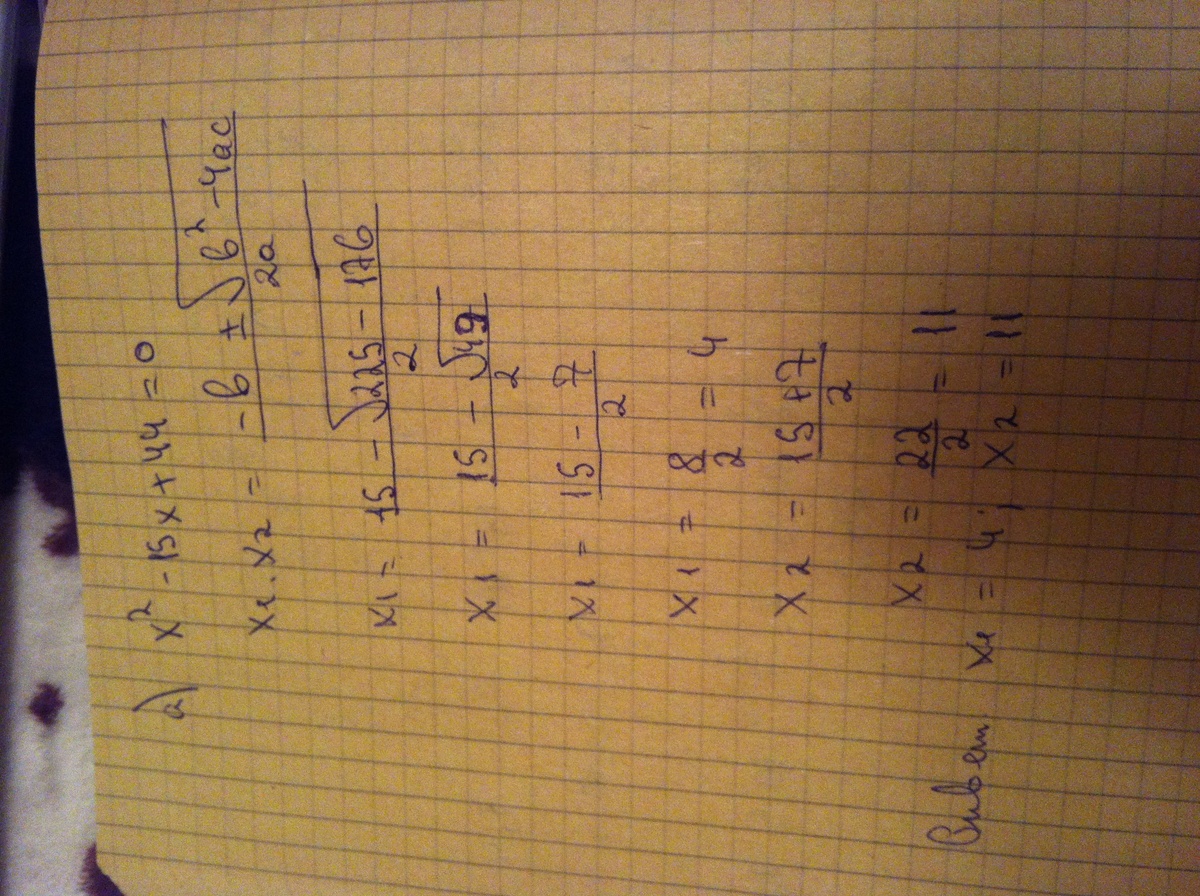 а) x² - 15x + 44 = 0
x₁.x₂ = (-в ± √(в² - 4ac))/2a
x1 = (15 - √(225 - 176))/2
x1 = (15 - √49)/2
x1 = (15 - 7)/2
x1 = 8/2 = 4
x2 = (15 + 7)/2
x2 = 22/2 = 11
x₁ = 4; x2 = 11